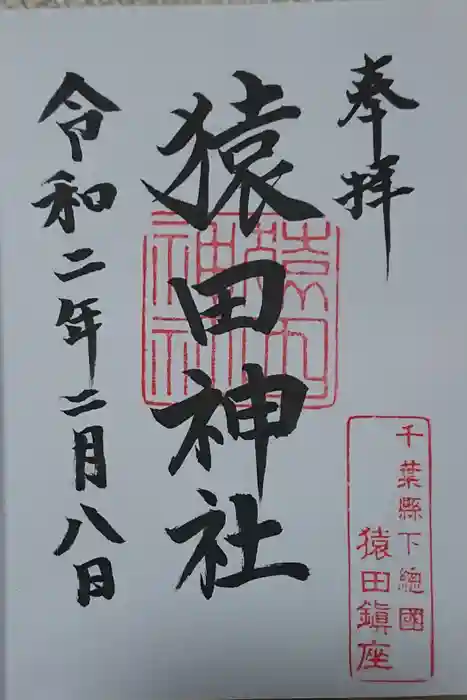 奉拝
猿田神社
令和二年二月八日
千葉縣下總國
猿田鎮座